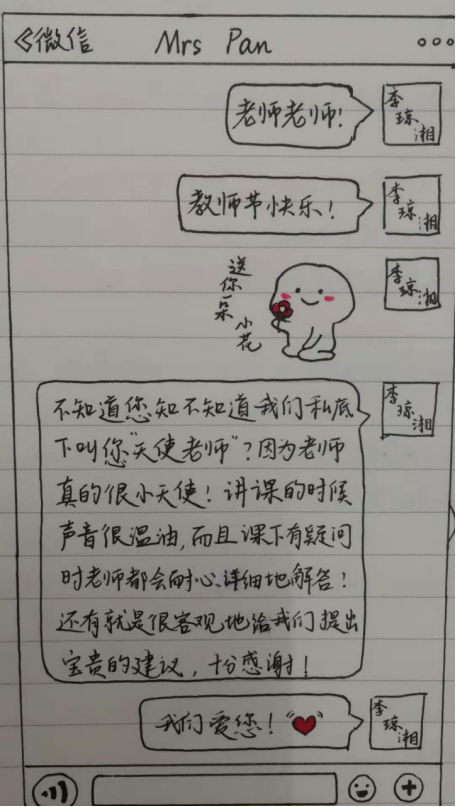 《微信 Mrs Pan
老师老师!
李琼湘
教师节快乐!
李琼湘
送你一朵
小花
李琼湘
不知道您知不知道我们私底
下叫您“天使老师”?因为老师
真的很小天使!讲课的时候
声音很温油,而且课下有疑问
时老师都会耐心、详细地解答!
还有就是很客观地给我们提出
宝贵的建议,十分感谢!
李琼湘
我们爱您!
李琼湘